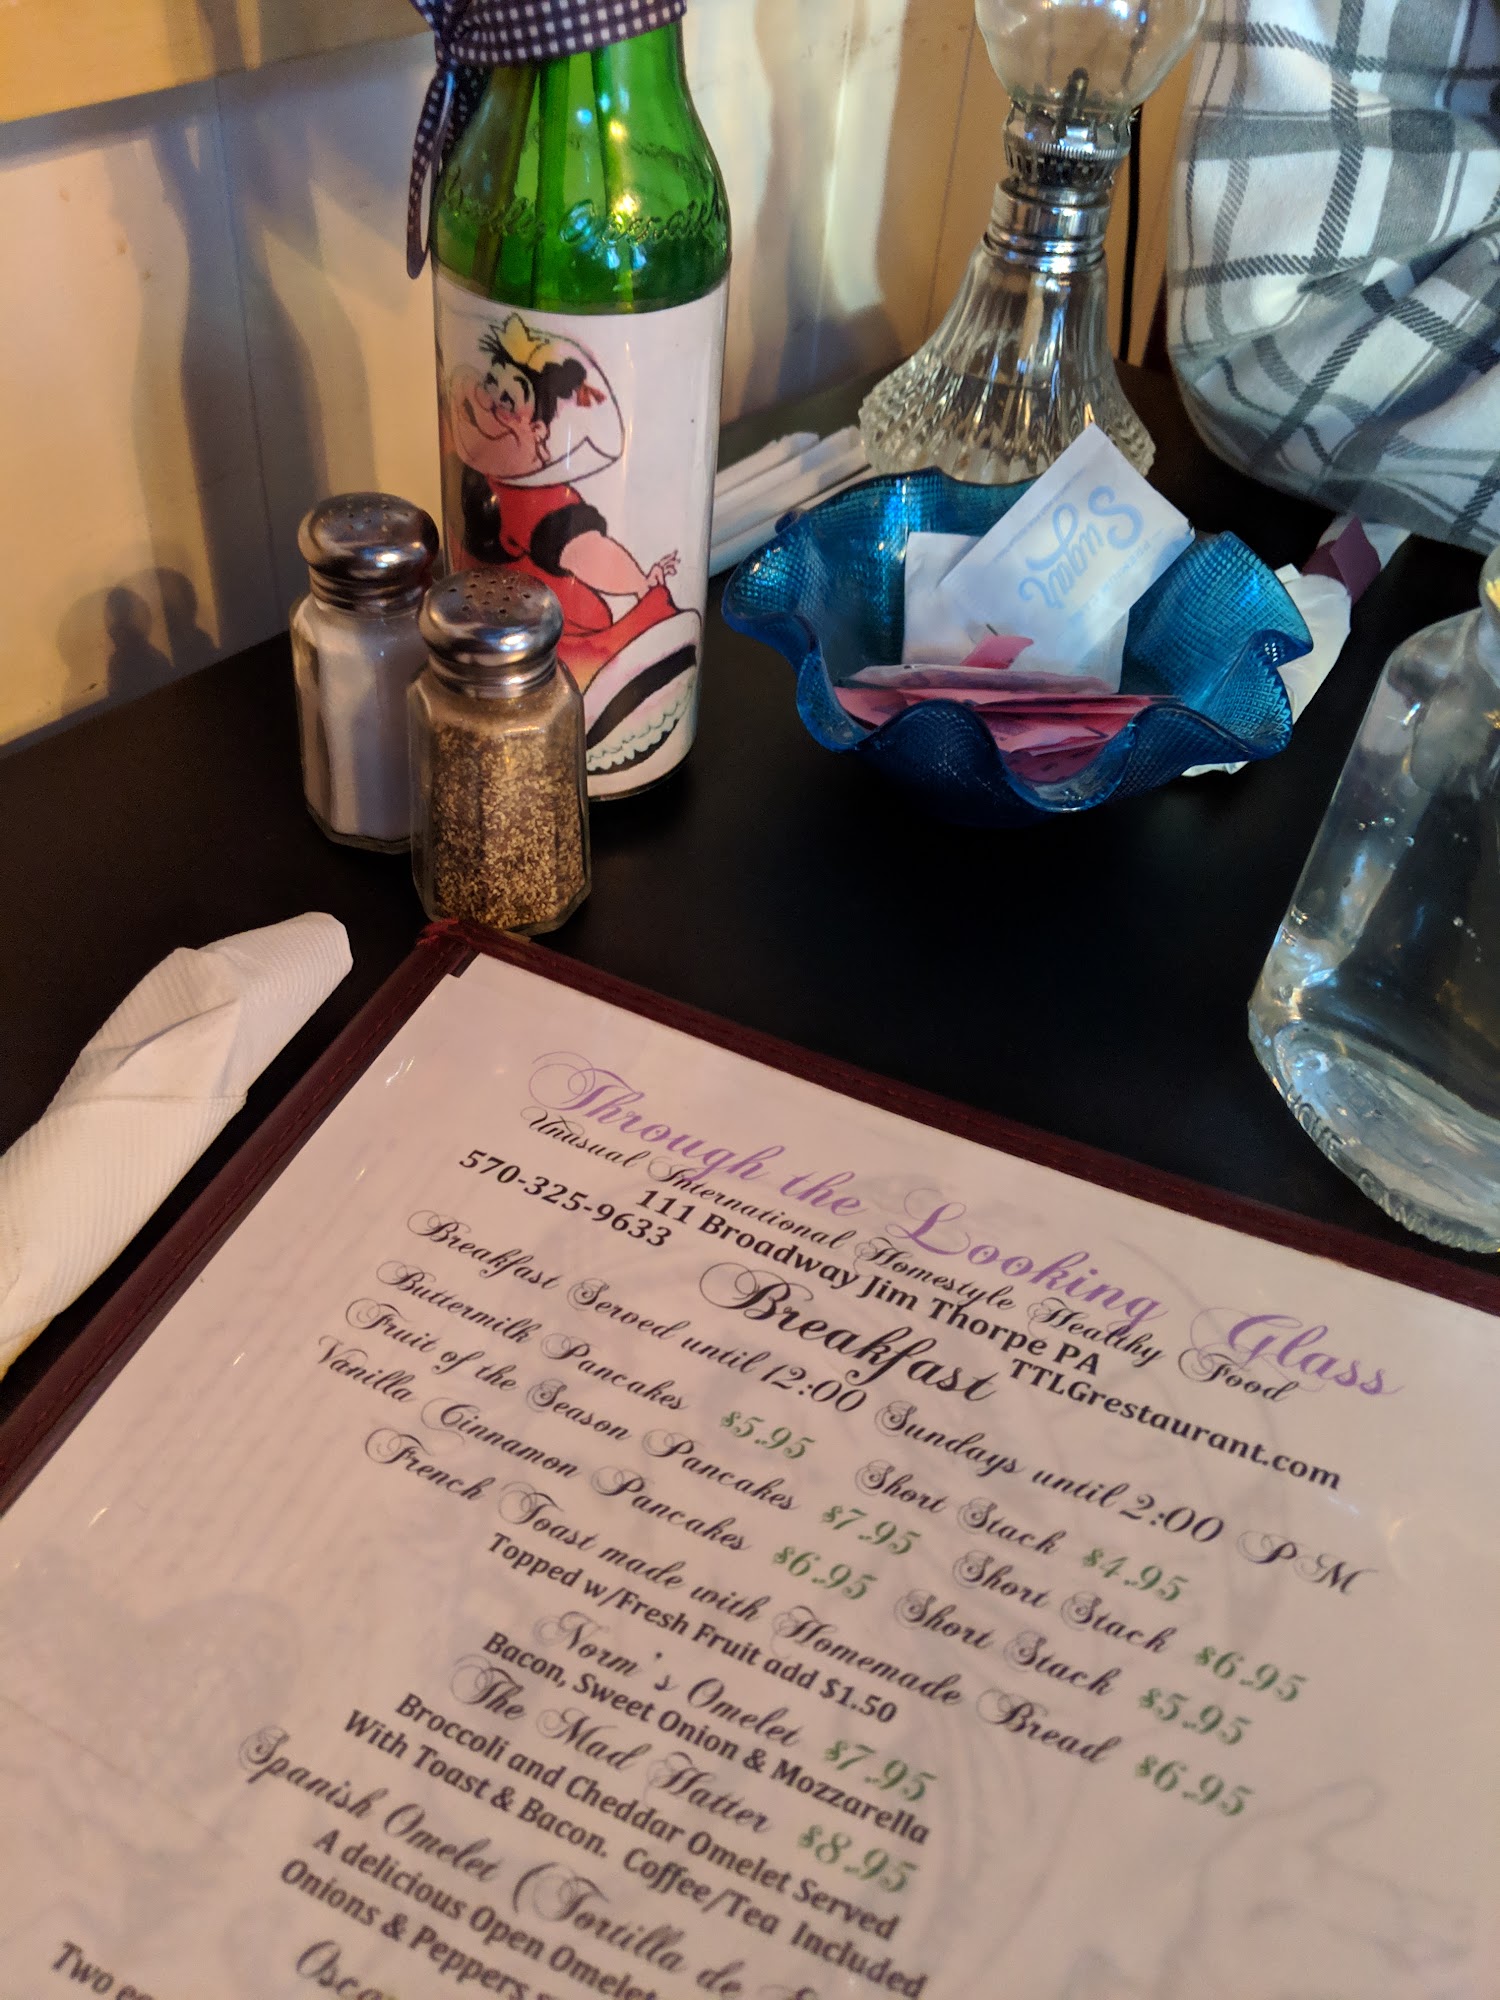 Sugar
Through the Looking Glass
Unusual International Homestyle Healthy Food
111 Broadway Jim Thorpe PA
570-325-9633 TTLGrestaurant.com
Breakfast
Breakfast Served until 12:00 Sundays until 2:00 PM
Buttermilk Pancakes $5.95 Short Stack $4.95
Fruit of the Season Pancakes $7.95 Short Stack $6.95
Vanilla Cinnamon Pancakes $6.95 Short Stack $5.95
French Toast made with Homemade Bread $6.95
Topped w/Fresh Fruit add $1.50
Norm's Omelet $7.95
Bacon, Sweet Onion & Mozzarella
The Mad Hatter $8.95
Broccoli and Cheddar Omelet Served
With Toast & Bacon. Coffee/Tea Included
Spanish Omelet (Tortilla de
A delicious Open Omelet
Onions & Peppers
Two